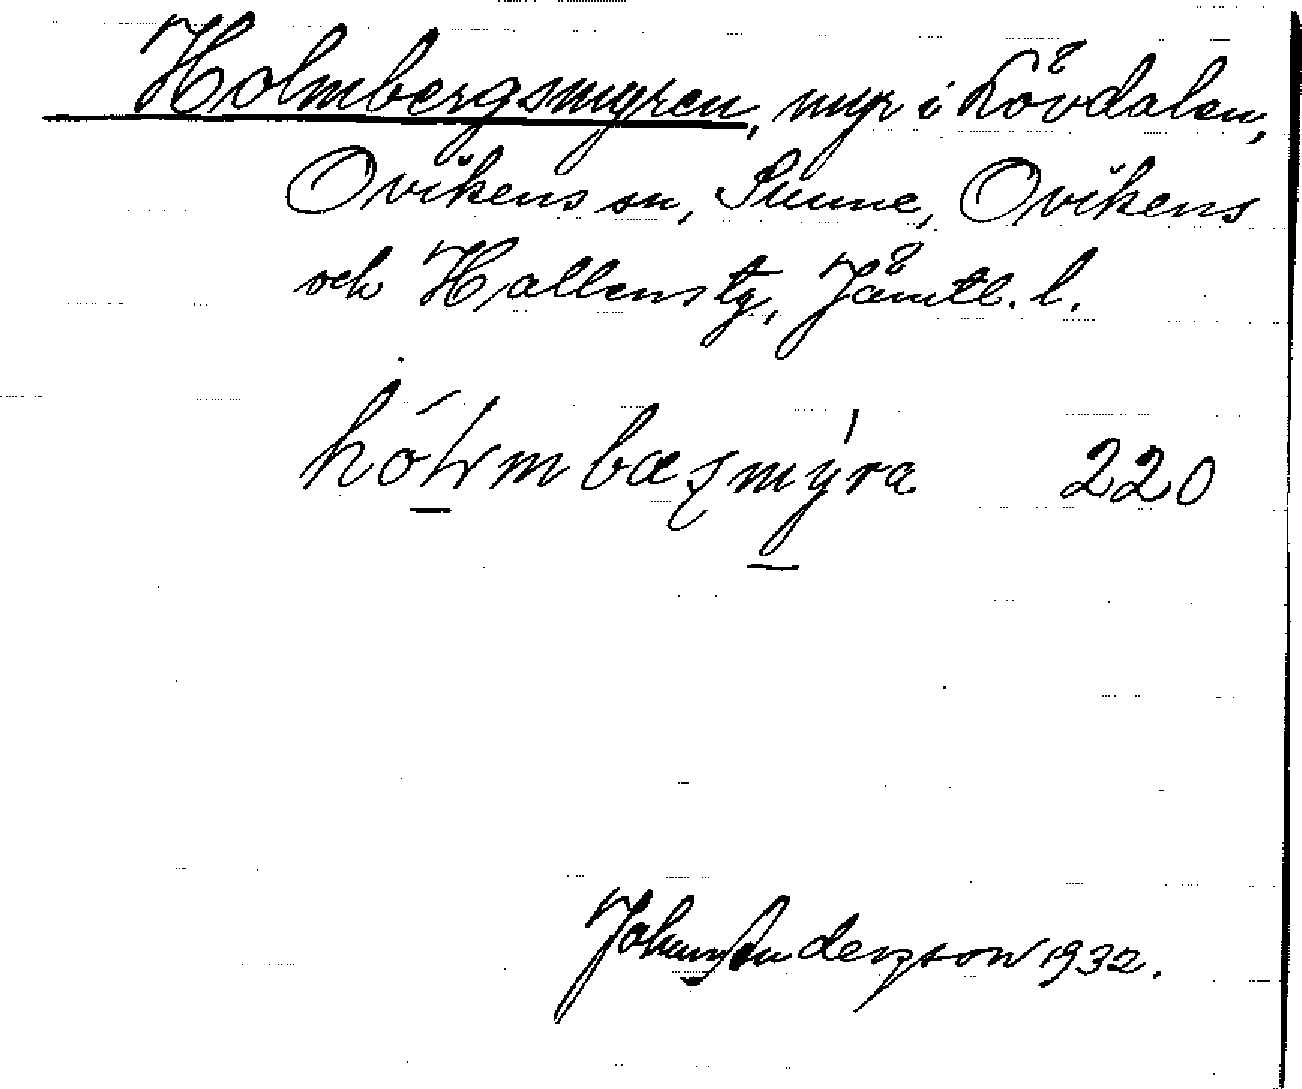 Holmbergsmyren, myr i Lövdalen,
Ovikens sn, Sunne, Ovikens
och Hallens tg, Jämtl. l.
220
Johans Anderzson 1932.